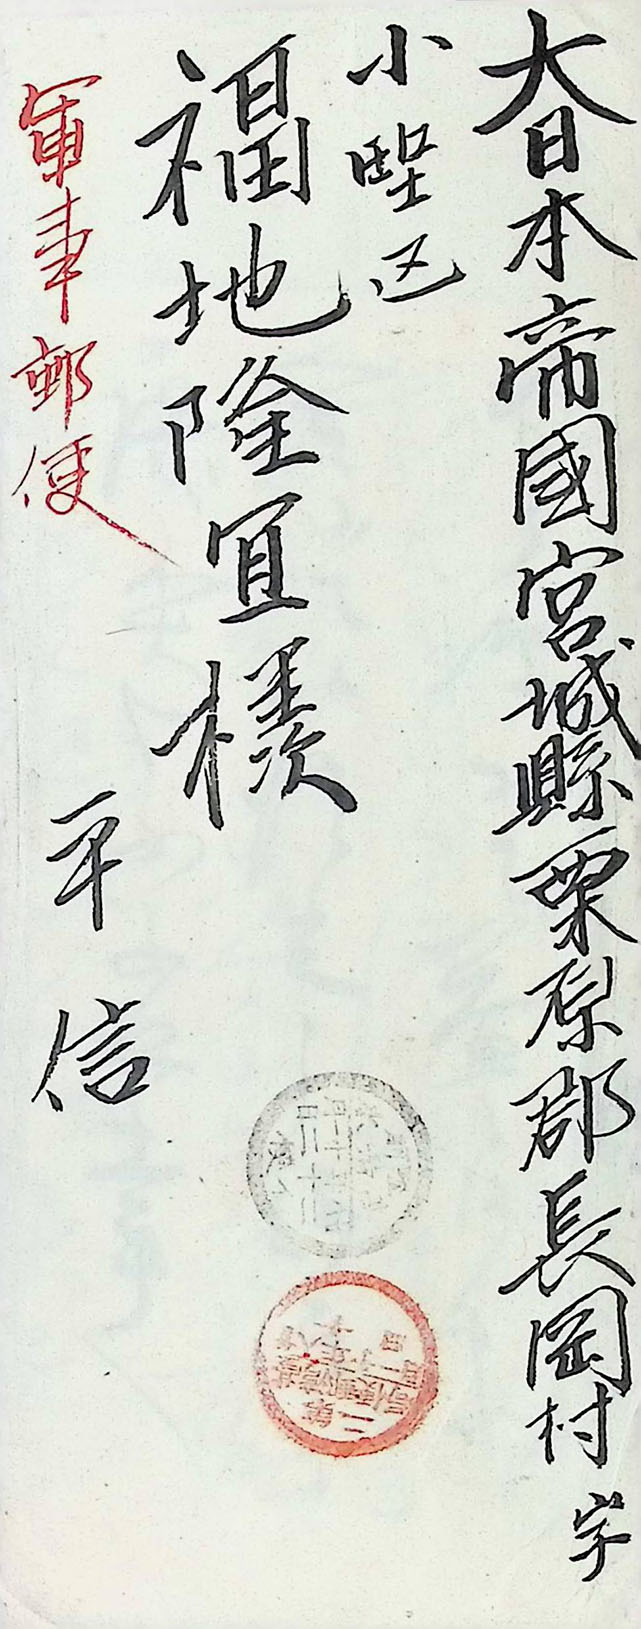 大日本帝國宮城縣栗原郡長岡村字
小埣区
福地隆宜様
平信
軍事郵便